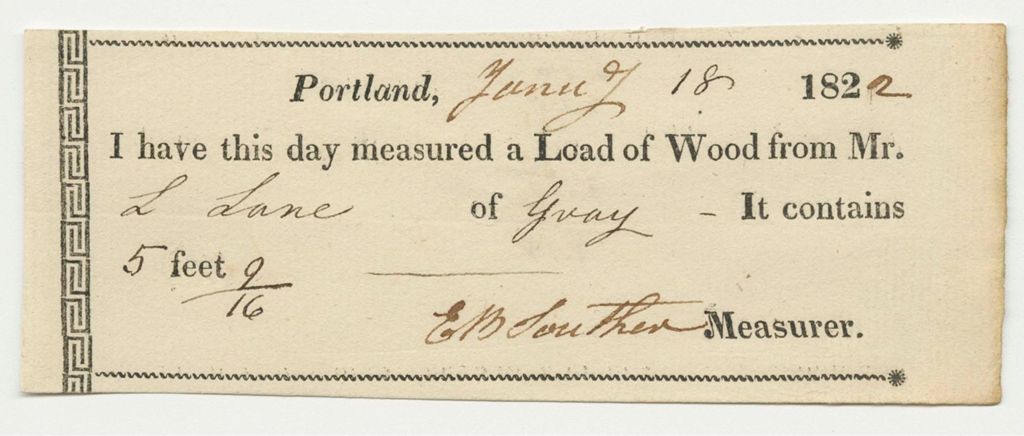 Portland, Janu'y 18 1822
I have this day measured a Load of Wood from Mr.
L Lane of Gray - It contains
5 feet 9/16
E B Souther Measurer.